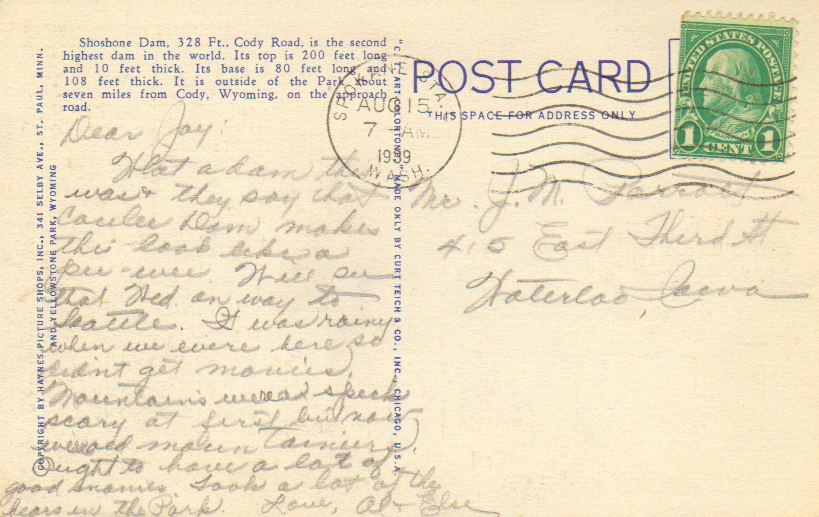 Shoshone Dam, 328 Ft., Cody Road, is the second
highest dam in the world. Its top is 200 feet long
and 10 feet thick. Its base is 80 feet long and
108 feet thick. It is outside of the Park about
seven miles from Cody, Wyoming, on the approach
road.
COPYRIGHT BY HAYNES PICTURE SHOPS, INC., 341 SELBY AVE., ST. PAUL, MINN.
AND YELLOWSTONE PARK, WYOMING
"C.T. ART-COLORTONE" MADE ONLY BY CURT TEICH & CO., INC., CHICAGO, U.S.A.
POST CARD
THIS SPACE FOR ADDRESS ONLY
SPOKANE STA.
AUG 15
7 - AM
1939
WASH.
UNITED STATES POSTAGE
FRANKLIN
1 CENT 1
Dear Jay:
What a dam this
was & they say that
Coulee Dam makes
this look like a
pee-wee. Will see
that Wed. on way to
Seattle. It was rainy
when we were here so
didn't get movies.
Mountains were a speck
scary at first but now
we're old mountaineers.
Ought to have a lot of
good movies. Took a lot of the
bears in the Park. Love, Al & Else
Mr. J. M.
East Third St
Waterloo, Iowa